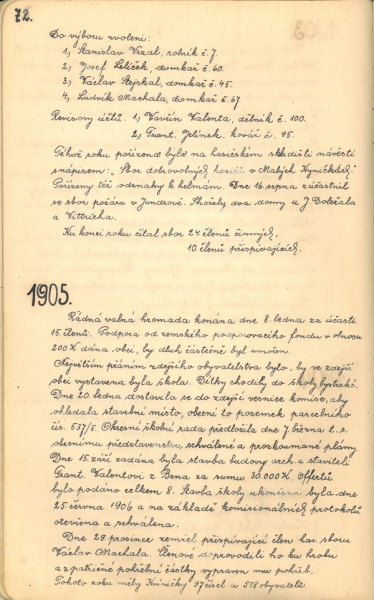 72.
Do výboru zvoleni:
1, Stanislav Vrzal, rolník č. 7.
2, Josef Lelíček, domkař č. 60.
3, Václav Stejskal, domkař č. 45.
4, Ludvík Machala, domkař č. 67
Revisory účtů: 1, Vavřín Valenta, dělník č. 100.
2, Frant. Jelínek, kovář č. 95.
Téhož roku pořízena byla na hasičském skladišti návěstí
s nápisem: "Sbor dobrovolných hasičů v Malých Kyničkách."
Pořízeny též odznaky k helmám. Dne 16. srpna zúčastnil
se sbor požáru v Jundrově. Shořely dva domy u J. Doležala
a Vittricha.
Ku konci roku čítal sbor 24 členů činných,
10 členů přispívajících.
1905.
Řádná valná hromada konána dne 8. ledna za účasti
15 členů. Podpora od zemského podporovacího fondu v obnosu
200 K dána obci, by dluh částečně byl umořen.
Největším přáním zdejšího obyvatelstva bylo, by ve zdejší
obci vystavena byla škola. Dítky chodily do školy bystrcké.
Dne 20. ledna dostavila se do zdejší vesnice komise, aby
ohledala stavební místo, obecní to pozemek parcelního
čís. 537/5. Okresní školní rada předložila dne 7. března t. r.
obecnímu představenstvu schválené a prozkoumané plány.
Dne 15. září zadána byla stavba budovy arch. a staviteli
Frant. Valentovi z Brna za sumu 30.000 K. Offertů
bylo podáno celkem 8. Stavba školy ukončena byla dne
25. června 1906 a na základě komisionálních protokolů
otevřena a schválena.
Dne 29. prosince zemřel přispívající člen has. sboru
Václav Machala. Členové doprovodili ho ku hrobu
a z patřičné pohřební částky vypraven mu pohřeb.
Tohoto roku měly Kníničky 97 čísel a 518 obyvatel.